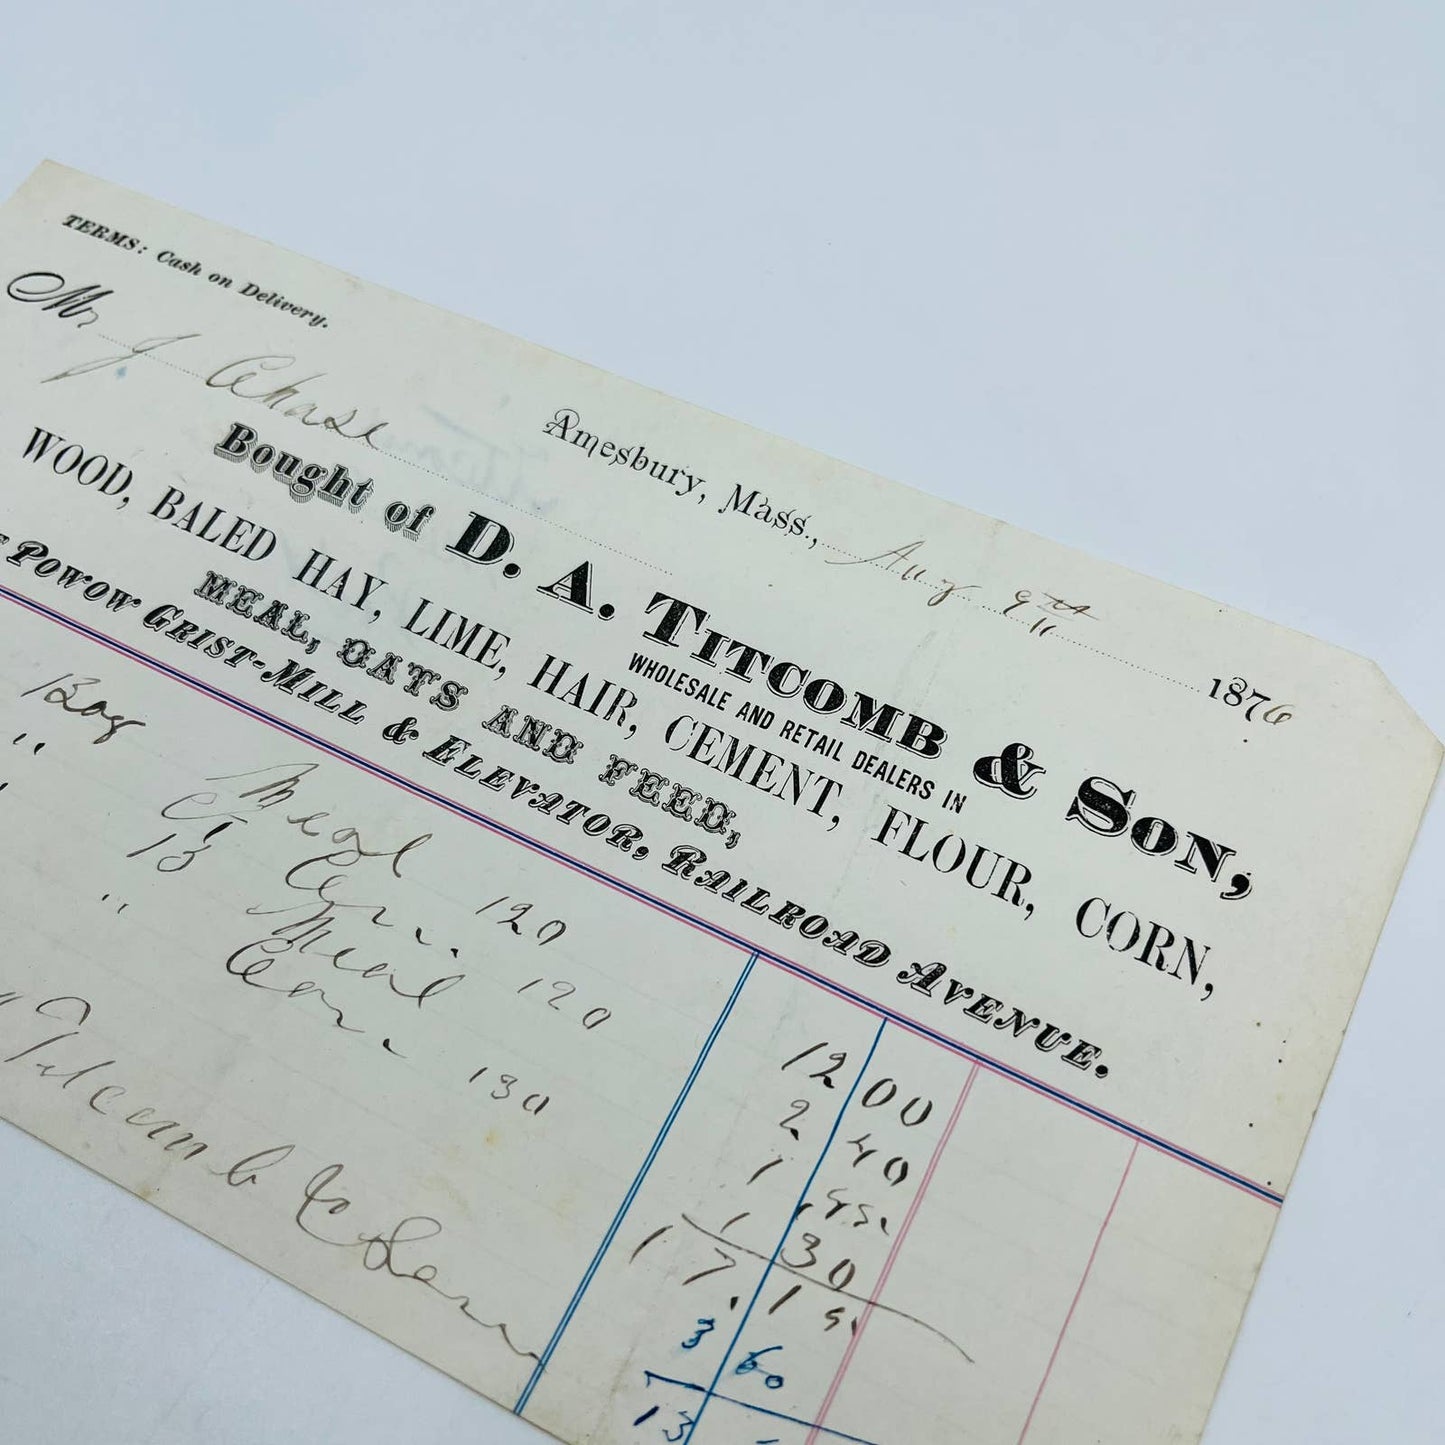 TERMS: Cash on Delivery.
Amesbury, Mass., Aug 9th 1876
Mr J Chase
Bought of D. A. TITCOMB & SON,
WHOLESALE AND RETAIL DEALERS IN
WOOD, BALED HAY, LIME, HAIR, CEMENT, FLOUR, CORN,
MEAL, OATS AND FEED,
POWOW GRIST-MILL & ELEVATOR, RAILROAD AVENUE.
Bag Meal 120 12 00
" Corn 120 2 40
Meal 1
" Corn 130 1 30
17.15
Titcomb & Son
3 60
13